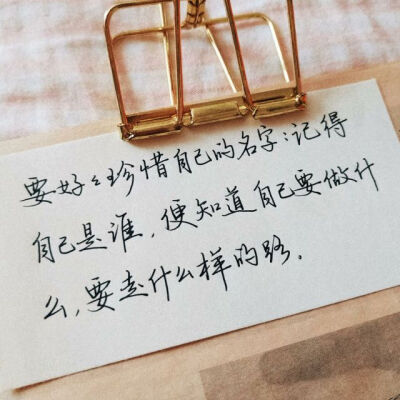 要好々珍惜自己的名字：记得
自己是谁，便知道自己要做什
么，要走什么样的路。